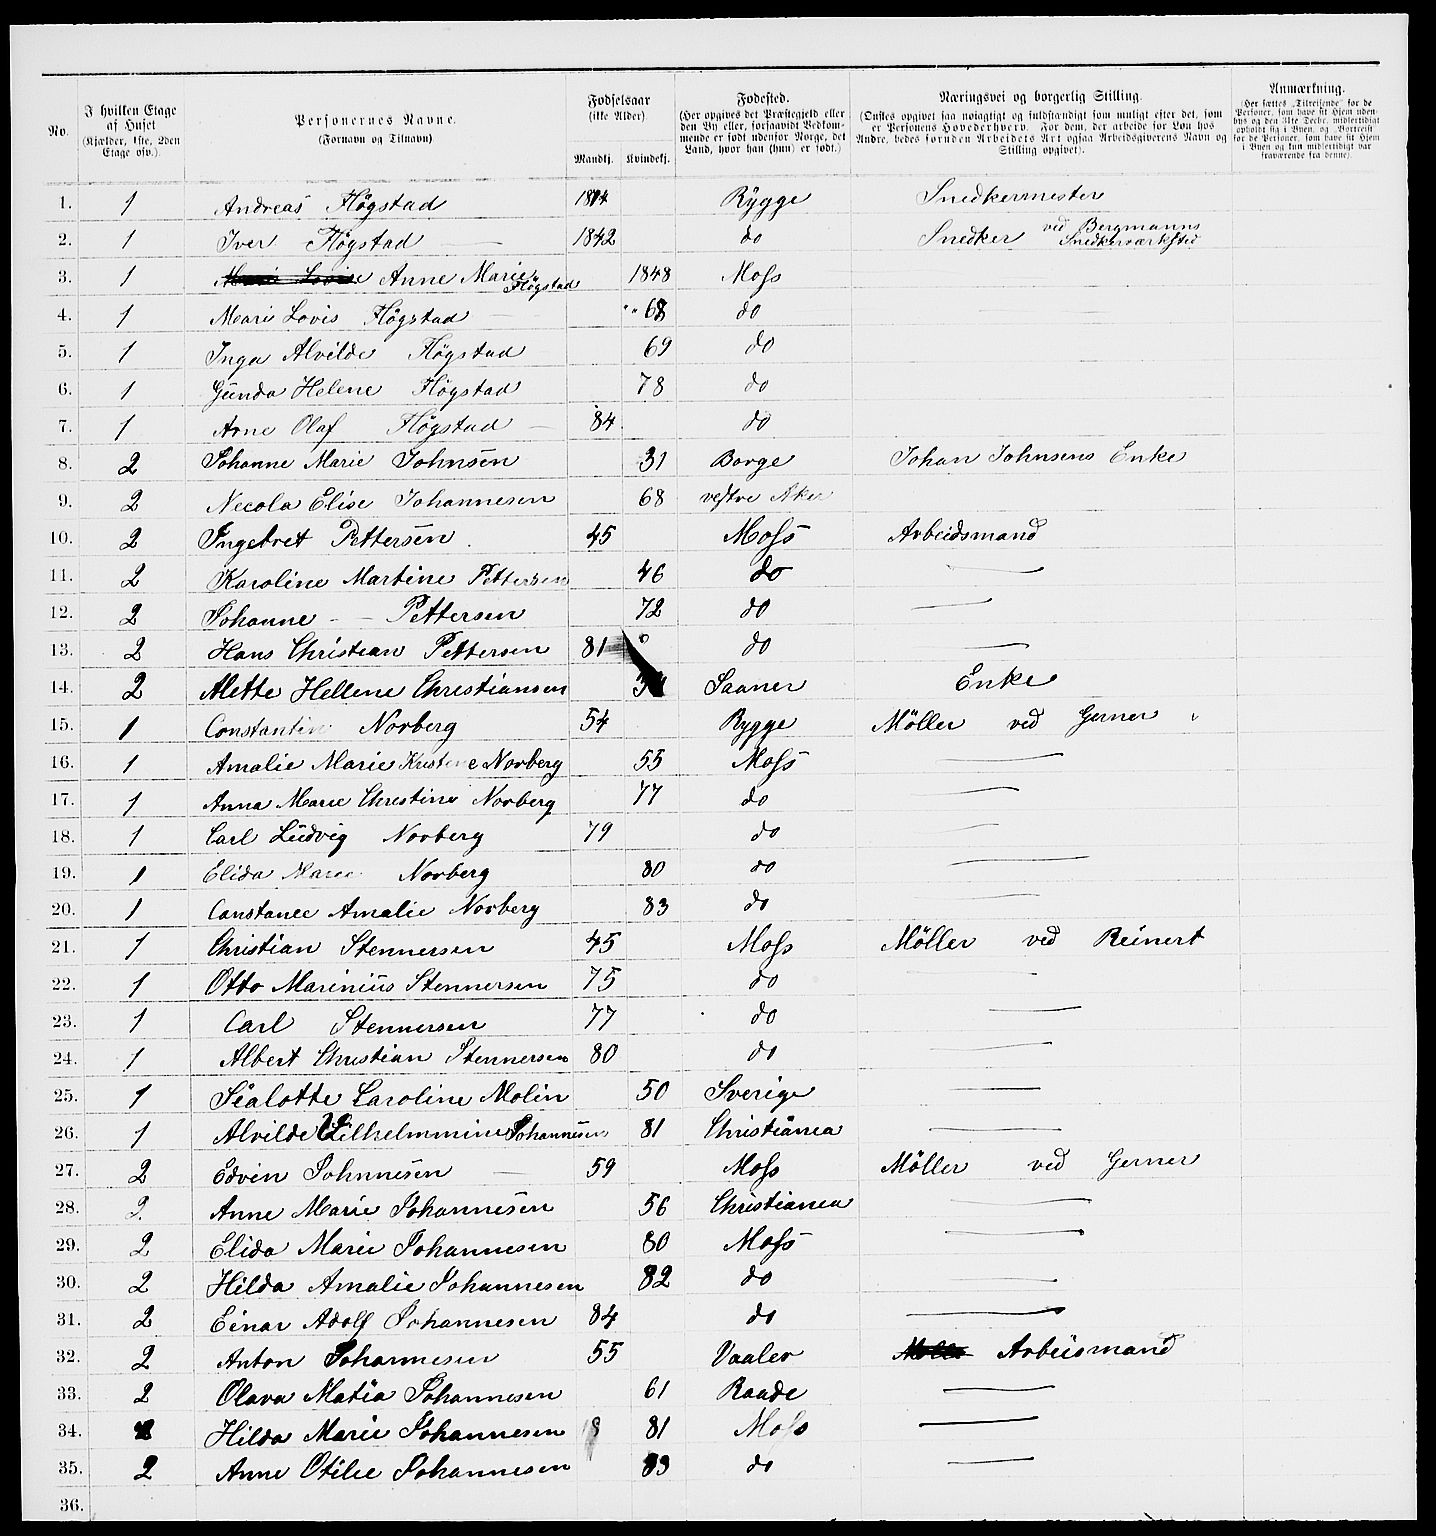 No. I hvilken Etage af Huset (Kjælder, 1ste, 2den Etage osv.). Personernes Navne. (Fornavn og Tilnavn) Fødselsaar (ikke Alder). Mandkj. Kvindekj. Fødested. (Her opgives det Præstegjeld eller den By eller, forsaavidt Vedkommende er født udenfor Norge, det Land, hvor han (hun) er født.) Næringsvei og borgerlig Stilling. (Ønskes opgivet saa nøiagtigt og fuldstændigt som muligt efter det, som er Personens Hovederhverv. For dem, der arbeide for Løn hos Andre, bedes foruden Arbeidets Art ogsaa Arbeidsgiverens Navn og Stilling opgivet). Anmærkning. (Her sættes „Tilreisende" for de Personer, som have sit Hjem udenbys og den 31te Decbr. midlertidigt ophold sig i Byen, og „Bortreist" for de Personer, som have sit Hjem i Byen og kun midlertidigt var fraværende fra denne).
1. 1 Andreas Högstad Rygge Snedkermester
2. 1 Iver Högstad — 1842 do Snedker ved Bergmanns Snedkerværksted
3. 1 Anne Marie Högstad 1848 Moss
4. 1 Marie Lovis Högstad " " 68 do
5. 1 Inga Alvilde Högstad 69 do
6. 1 Gunda Helene Högstad 78 do
7. 1 Arne Olaf Högstad — 84 do
8. 2 Johanne Marie Johnsen 31 Borge Johan Johnsens Enke
9. 2 Necola Elise Johannesen 68 vestre Aker
10. 2 Ingebret Pettersen 45 Moss Arbeidsmand
11. 2 Karoline Martine Pettersen 46 do —
12. 2 Johanne - — Pettersen 72 do —
13. 2 Hans Christian Pettersen 81 do —
14. 2 Alette Hellene Christiansen Saaner Enke
15. 1 Constantin Norberg 54 Rygge Möller ved Gerner
16. 1 Amalie Marie Kristine Norberg 55 Moss —
17. 1 Anna Marie Christine Norberg 77 do —
18. 1 Carl Ludvig Norberg 79 do —
19. 1 Elida Marie Norberg 80 do —
20. 1 Constance Amalie Norberg 83 do —
21. 1 Christian Stennersen 45 Moss Möller ved Reinert
22. 1 Otto Marinius Stennersen 75 do —
23. 1 Carl Stennersen 77 do —
24. 1 Albert Christian Stennersen 80 do —
25. 1 Sealotte Caroline Molin 50 Sverige —
26. 1 Alvilde Vilhelmmine Johannesen 81 Christiania —
27. 2 Edvin Johnnesen — 59 Moss Möller ved Gerner
28. 2. Anne Marie Johannesen 56 Christiania —
29. 2 Elida Marie Johannesen 80 Moss —
30. 2 Hilda Amalie Johannesen 82 do —
31. 2 Einar Adolf Johannesen 84 do —
32. 2 Anton Johannesen 55 Vaaler Arbeismand
33. 2 Olava Matia Johannesen 61 Raade —
34. 2 Hilda Marie Johannesen 81 Moss —
35. 2 Anne Otilie Johannesen 83 do —
36.